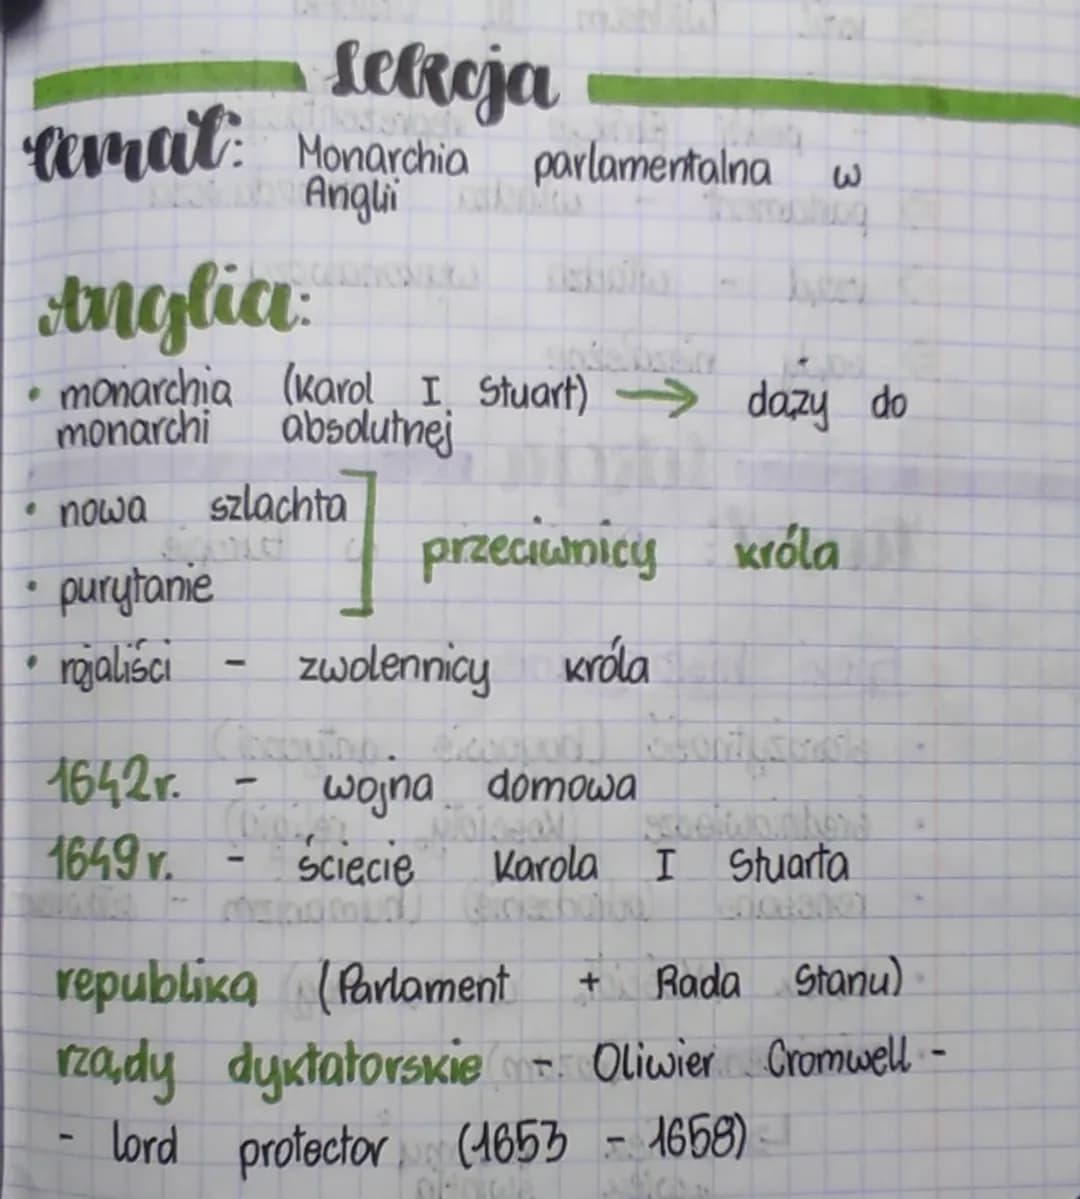 Lekcja
Temat: Monarchia parlamentalna w
Anglii
Anglia:
• monarchia (Karol I Stuart) → dąży do
monarchi absolutnej
• nowa szlachta
przeciwnicy króla
• purytanie
• rojaliści - zwolennicy króla
1642r. - wojna domowa
1649r. - ścięcie Karola I Stuarta
republika (Parlament + Rada Stanu)
rządy dyktatorskie - Oliwier Cromwell -
- lord protector (1653 - 1658)